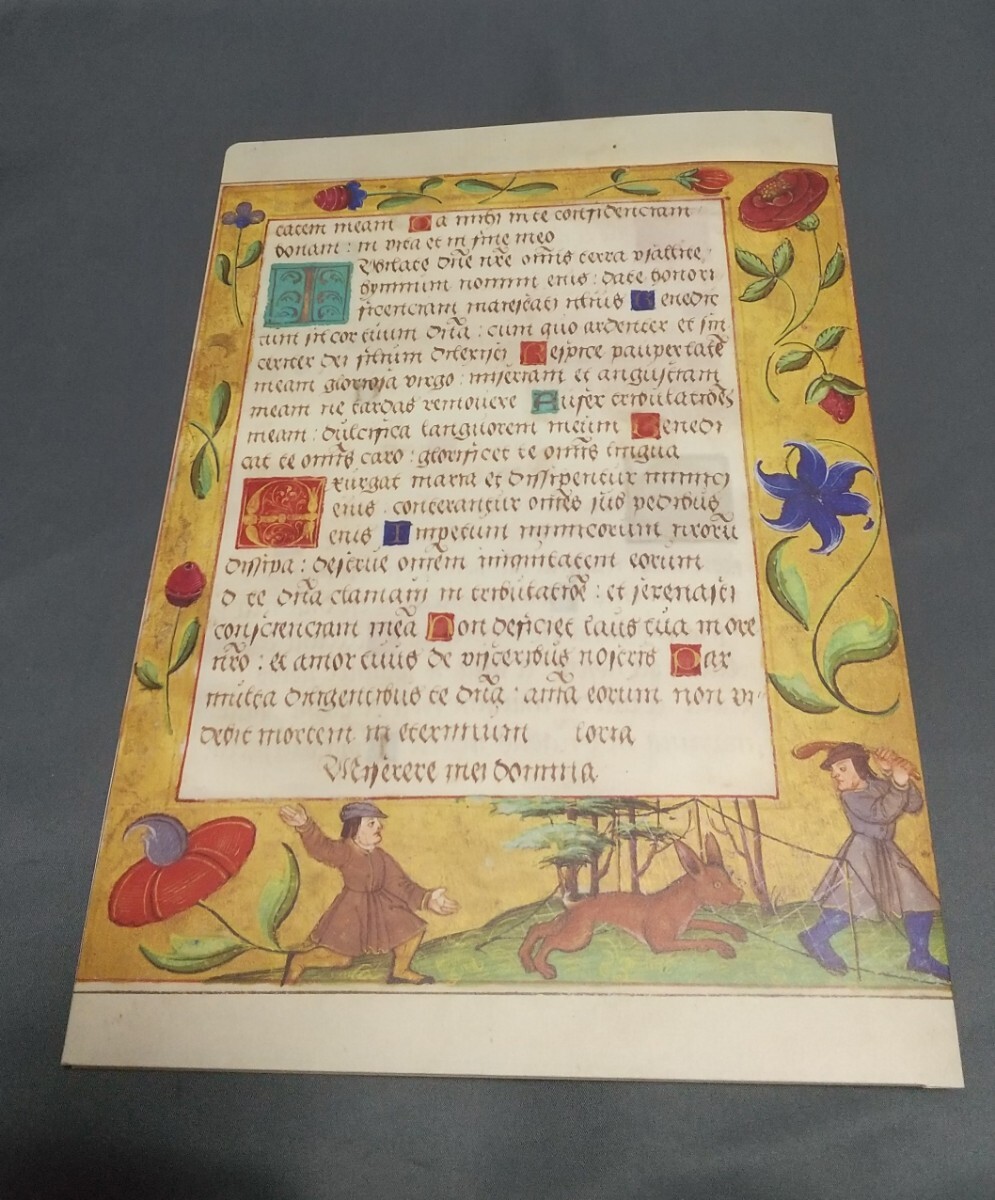 tatem meam Da mihi in te confidenciam
bonam : in vita et in fine meo
IVbilate dn̄e nr̄e om̄is terra psallite
hymnum nomini eius : date honori
ficenciam maiestati illius Benedic
tum sit cor tuum dn̄a : cum quo ardenter et sin
ceriter dei filium dilexisti Respice paupertatē
meam gloriosa virgo : miseriam et angustiam
meam ne tardas removere Aufer tribulatiōes
meam : dulcifica languorem meum Benedi
cat te om̄is caro : glorificet te om̄is lingua
Exurgat maria et dissipentur inimici
eius : conterantur om̄es sub pedibus
eius Impetum inimicorum nr̄orū
dissipa : destrue om̄em iniquitatem eorum
d te dn̄a clamavi in tribulatiōe : et serenasti
conscienciam meā Non deficiet laus tua in ore
nr̄o : et amor tuus de visceribus nostris Pax
multa diligentibus te dn̄a : aīa eorum non vi
debit mortem in eternum loria
Miserere mei domina